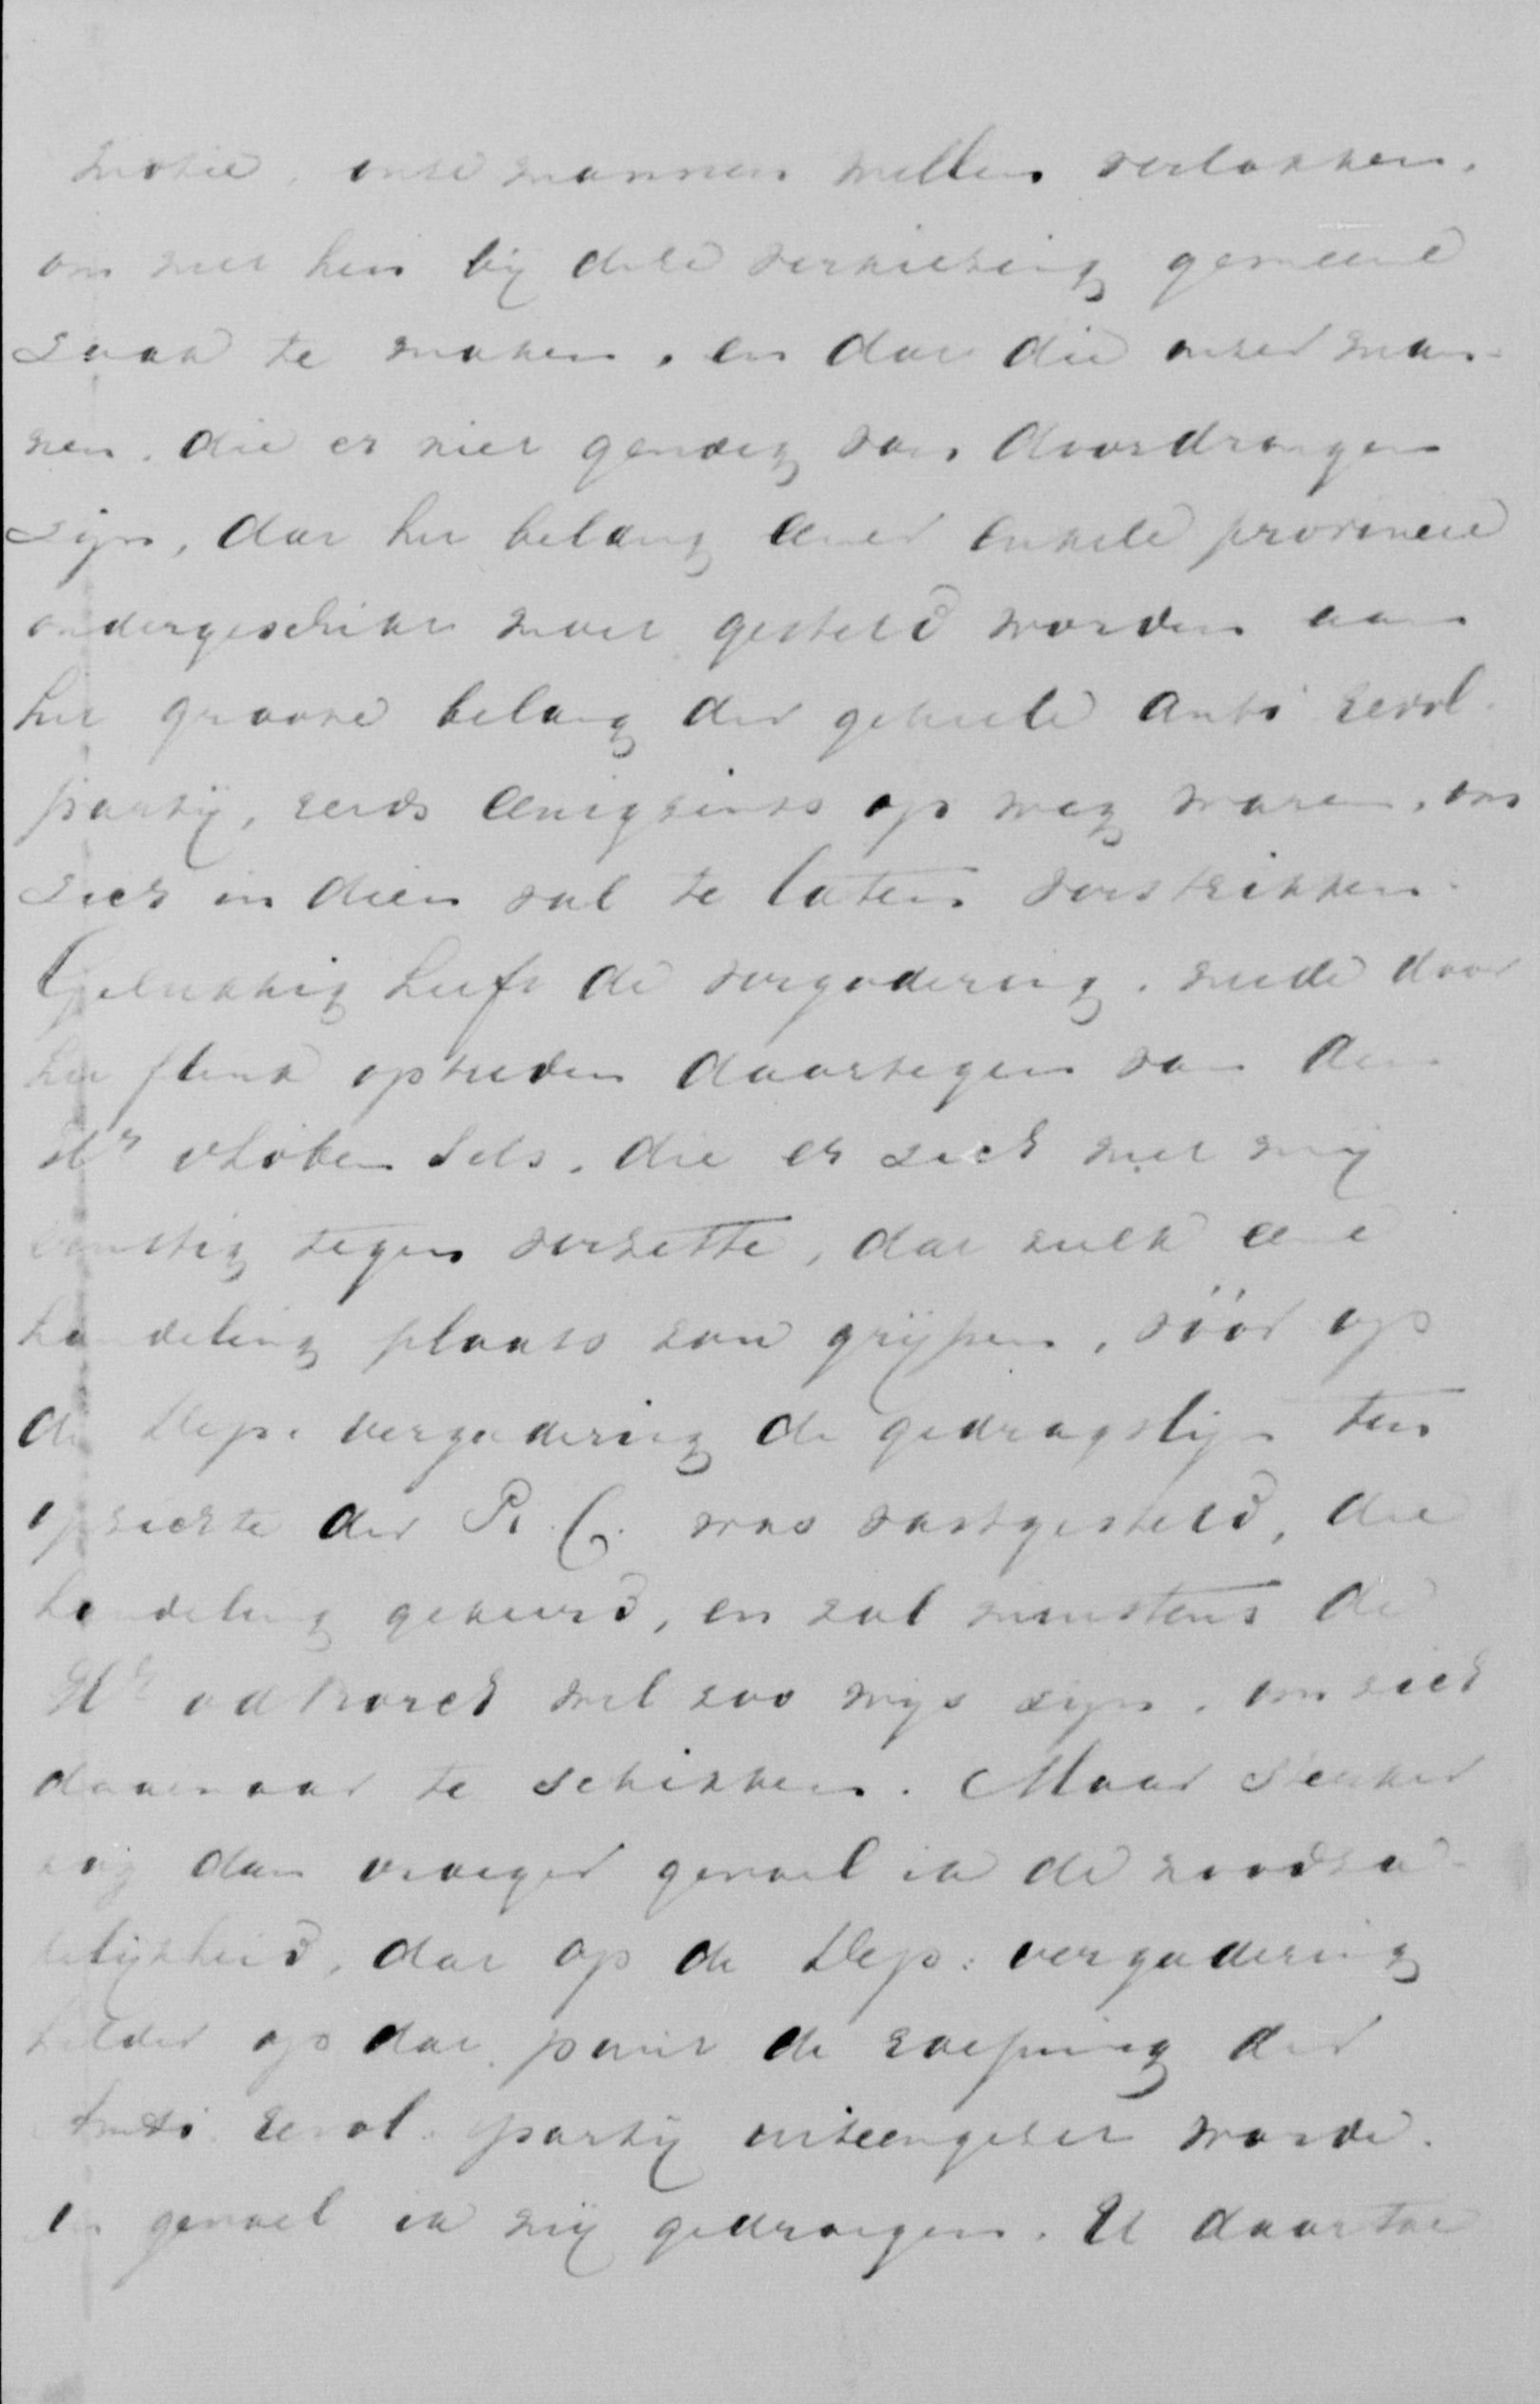 motie, onze mannen willen verlokken,
om met hen bij deze verkiezing gemeene
zaak te maken, en dat die onzer man-
nen, die er niet genoeg van doordrongen
zijn, dat het belang eener enkele provincie
ondergeschikt moet gesteld worden aan
het groote belang der geheele Anti revol.
partij, reeds eenigzints op weg waren, om
zich in dien val te laten verstrikken.
Gelukkig heeft de vergadering, mede door
het flink optreden daartegen van den
Hr v Löben Sels, die er zich met mij
ernstig tegen verzette, dat zulk eene
handeling plaats zou grijpen, vóór op
de Dep. vergadering de gedragslijn ten
opzichte der R. C. was vastgesteld, die
handeling gekeurd, en zal minstens de
Hr vd Borch wel zoo wijs zijn, om zich
daarnaar te schikken. Maar sterker
nog dan vroeger gevoel ik de noodza-
kelijkheid, dat op de Dep: vergadering
helder op dat punt de roeping der
Anti revol. partij uiteengezet worde.
En gevoel ik mij gedrongen, U daartoe